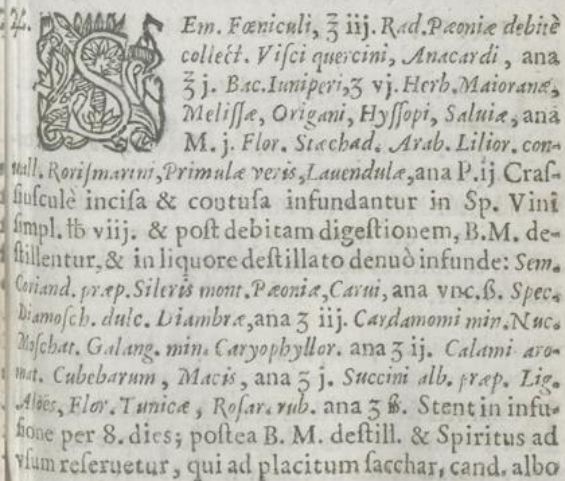 ℞. SEm. Fœniculi, ℥ iij. Rad. Pæoniæ debitè
collect. Visci quercini, Anacardi, ana
℥ j. Bac. Iuniperi, ʒ vj. Herb. Maioranæ,
Melissæ, Origani, Hyssopi, Saluiæ, anà
M. j. Flor. Stæchad. Arab. Lilior. con-
uall. Rorismarini, Primulæ veris, Lauendulæ, ana P. ij Cras-
siusculè incisa & contusa infundantur in Sp. Vini
simpl. ℔ viij. & post debitam digestionem, B. M. de-
stillentur, & in liquore destillato denuò infunde: Sem.
Coriand. præp. Sileris mont. Pæoniæ, Carui, ana vnc. ß. Spec.
Diamosch. dulc. Diambræ, ana ʒ iij. Cardamomi min. Nuc.
Moschat. Galang. min. Caryophyllor. ana ʒ ij. Calami aro-
mat. Cubebarum, Macis, ana ʒ j. Succini alb. præp. Lig.
Aloës, Flor. Tunicæ, Rosar. rub. ana ʒ ß. Stent in infu-
sione per 8. dies; postea B. M. destill. & Spiritus ad
vsum reseruetur, qui ad placitum sacchar. cand. albo